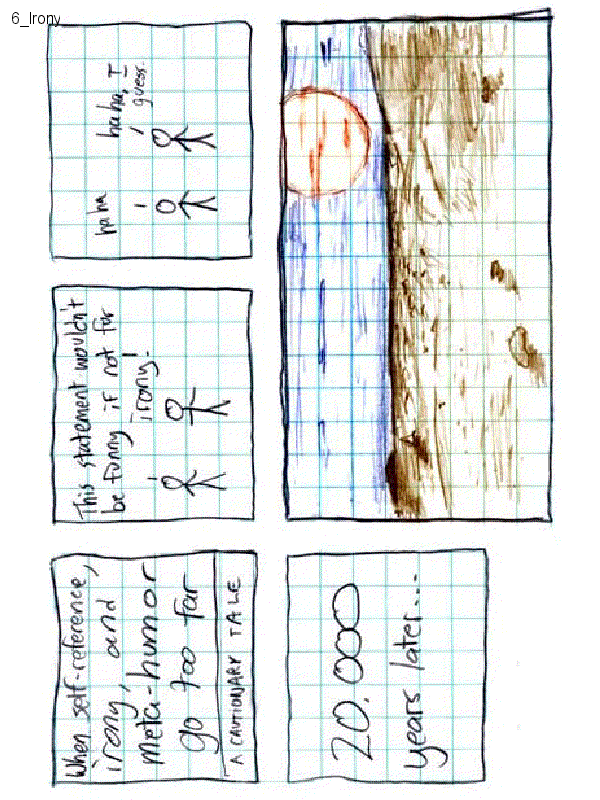 6_Irony
When self-reference,
irony, and
meta-humor
go too far
A CAUTIONARY TALE
This statement wouldn't
be funny if not for
irony!
haha
haha, I
guess.
20,000
years later...